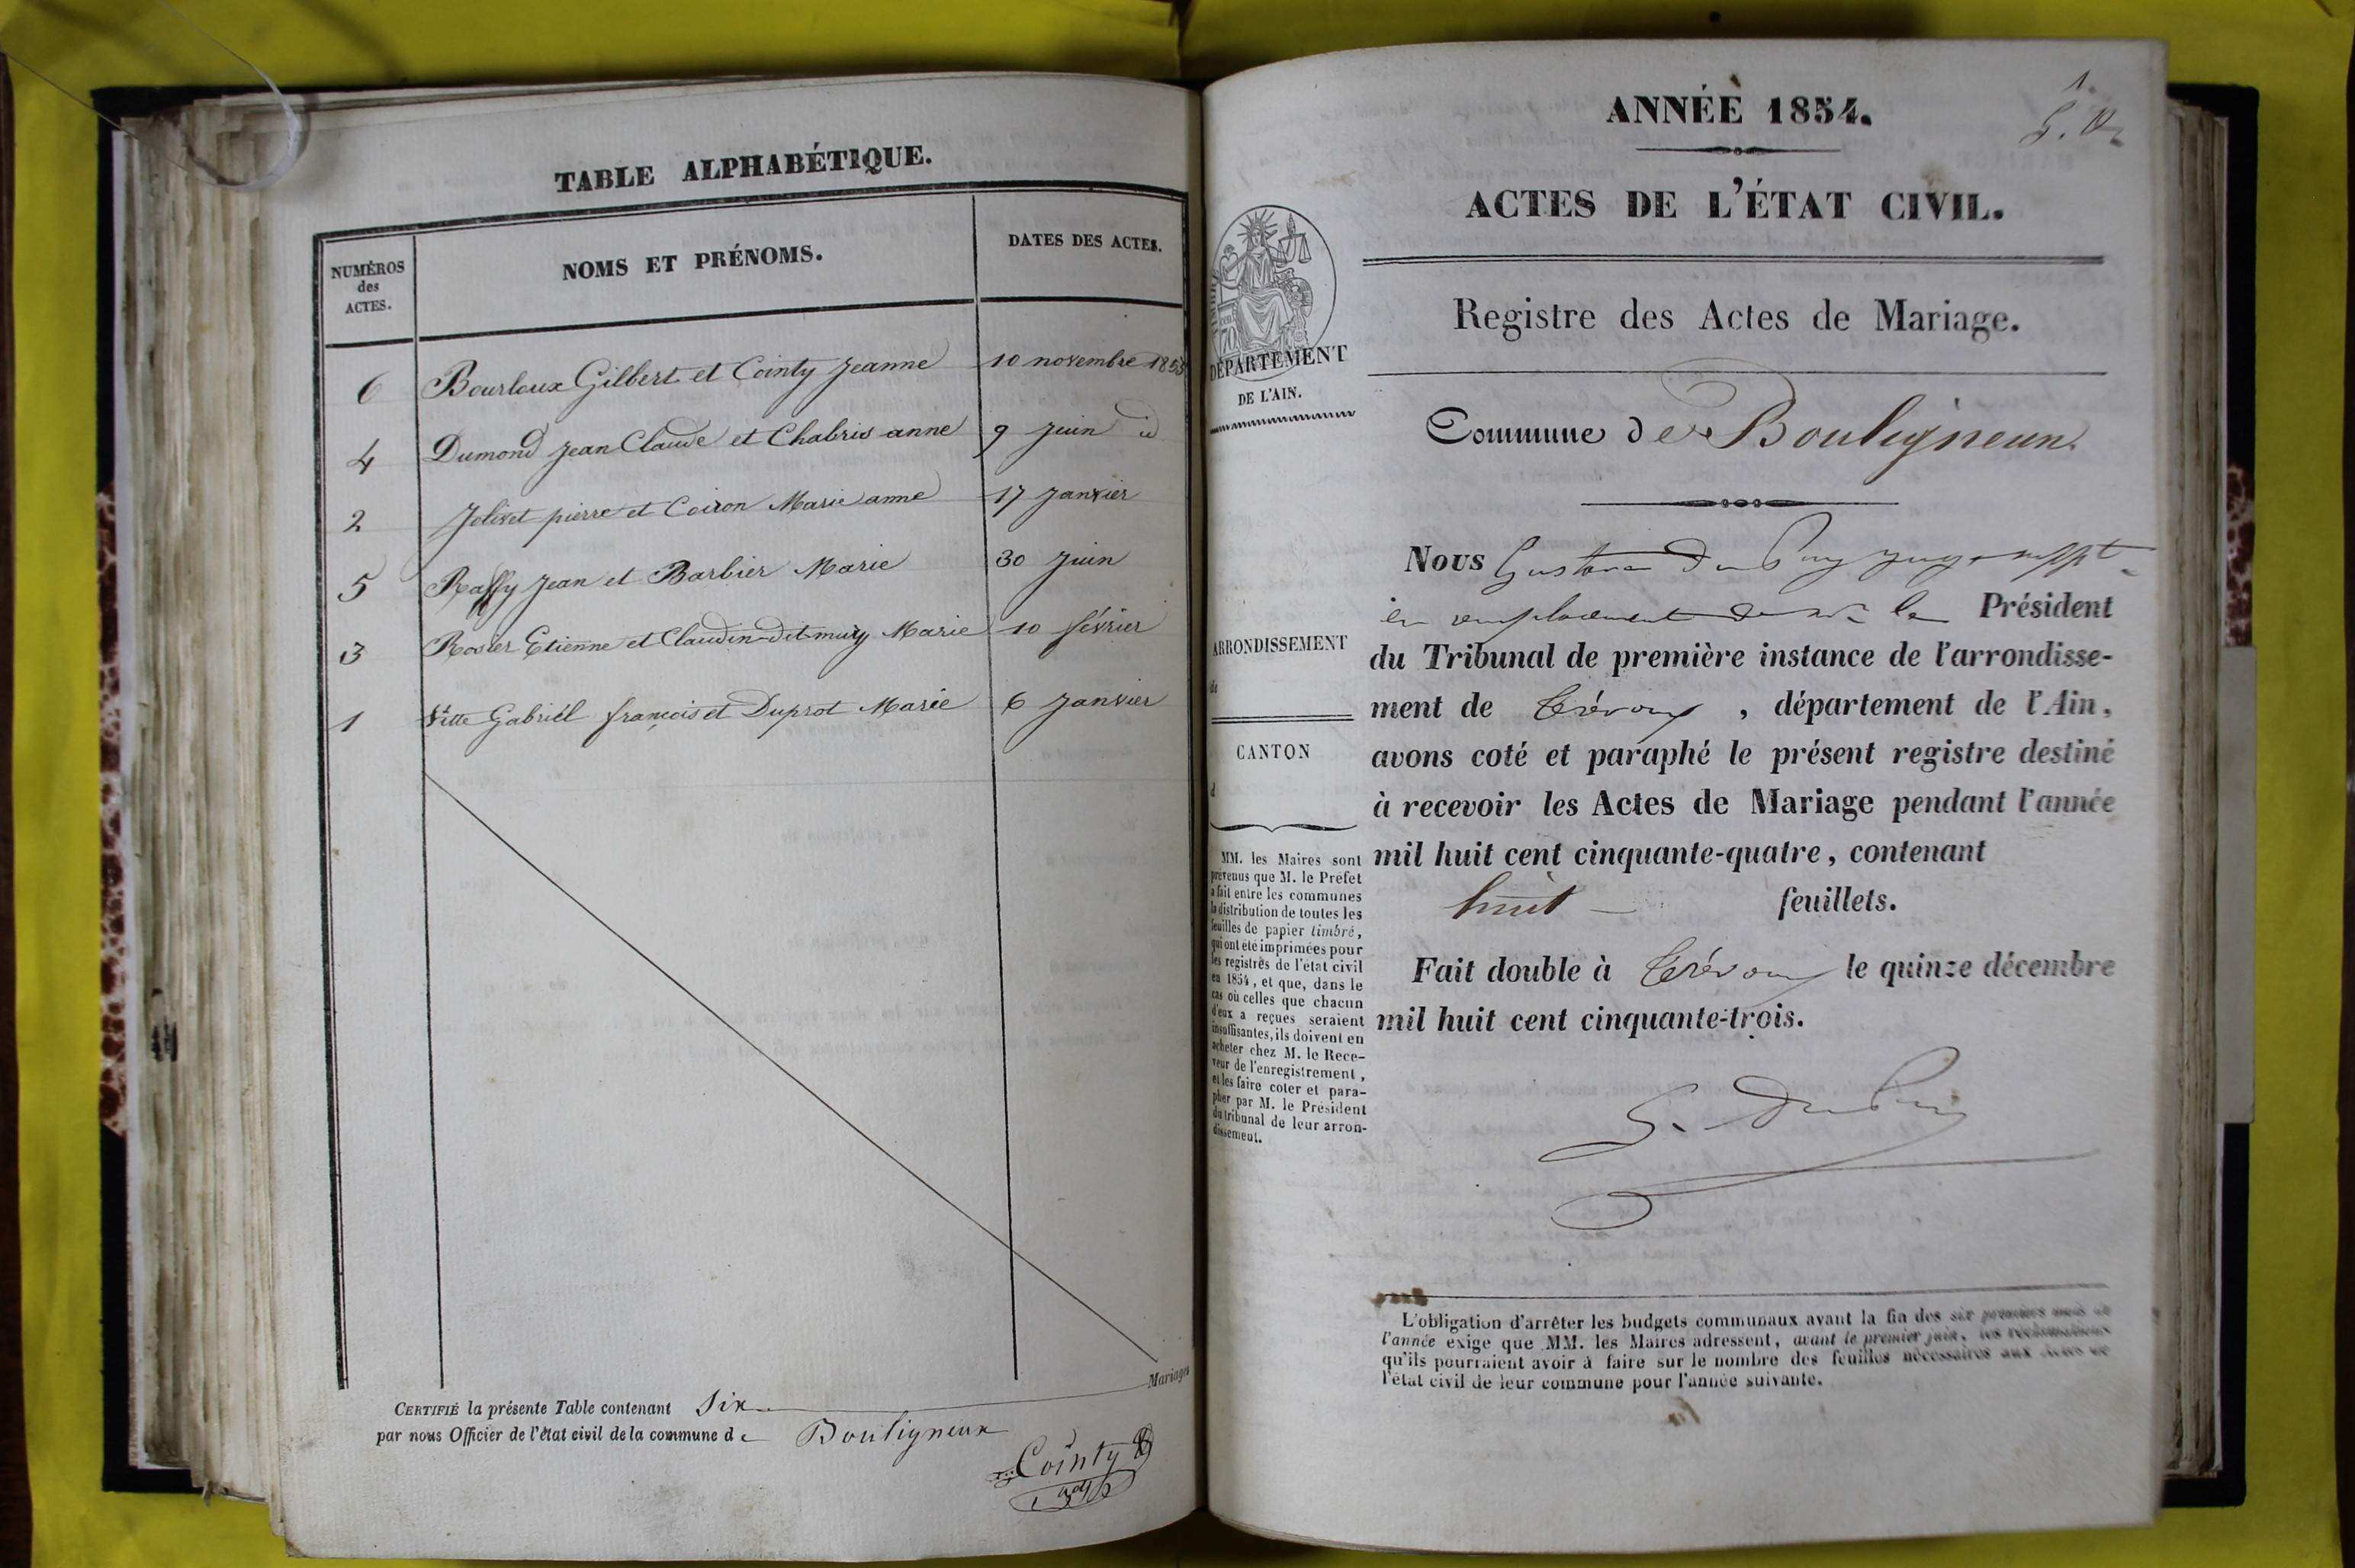 TABLE ALPHABÉTIQUE.
NUMÉROS
des
ACTES.
NOMS ET PRÉNOMS.
DATES DES ACTES.
6 Bourloux Gilbert et Cointy Jeanne 10 novembre 1853
4 Dumond Jean Claude et Chabris anne 9 Juin id
2 Jolivet pierre et Coiron Marie anne 17 Janvier
5 Raffy Jean et Barbier Marie 30 Juin
3 Rosier Etienne et Claudin-dit-mury Marie 10 février
1 Vitte Gabriél françois et Duprot Marie 6 Janvier
CERTIFIÉ la présente Table contenant Six Mariages
par nous Officier de l'état civil de la commune de Bouligneux
Cointy
adj
1.
ANNÉE 1854.
ACTES DE L'ÉTAT CIVIL.
Registre des Actes de Mariage.
DÉPARTEMENT
DE L'AIN.
Commune de Bouligneux.
Nous Gustave DuPuy juge suppt
en remplacement de Mr le Président
du Tribunal de première instance de l'arrondisse-
ment de Trévoux, département de l'Ain,
avons coté et paraphé le présent registre destiné
à recevoir les Actes de Mariage pendant l'année
mil huit cent cinquante-quatre, contenant
huit feuillets.
Fait double à Trévoux le quinze décembre
mil huit cent cinquante-trois.
G. DuPuy
ARRONDISSEMENT
de
CANTON
d
MM. les Maires sont
prévenus que M. le Préfet
a fait entre les communes
la distribution de toutes les
feuilles de papier timbré,
qui ont été imprimées pour
les registres de l'état civil
en 1854, et que, dans le
cas où celles que chacun
d'eux a reçues seraient
insuffisantes, ils doivent en
acheter chez M. le Rece-
veur de l'enregistrement,
et les faire coter et para-
pher par M. le Président
du tribunal de leur arron-
dissement.
L'obligation d'arrêter les budgets communaux avant la fin des six premiers mois de
l'année exige que MM. les Maires adressent, avant le premier juin, les réclamations
qu'ils pourraient avoir à faire sur le nombre des feuilles nécessaires aux Actes de
l'état civil de leur commune pour l'année suivante.